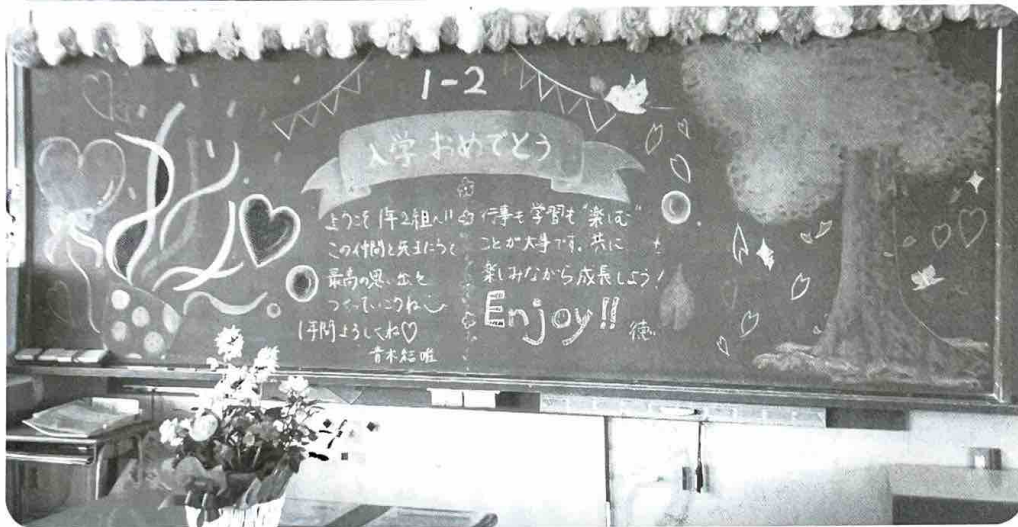 1-2
入学おめでとう
ようこそ1年2組へ!!
この仲間と先生たちで
最高の思い出を
つくっていこうね
1年間よろしくね♡
青木結唯
行事も学習も"楽しむ"
ことが大事です。共に
楽しみながら成長しよう!
Enjoy!!
徳